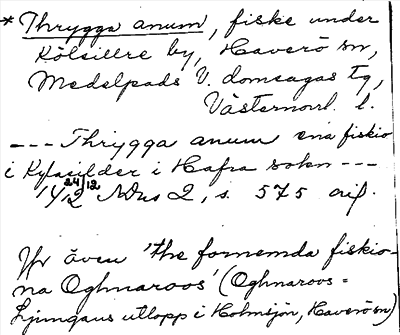 * Thrygga anum, fiske under
Kölsillre by, Haverö sn,
Medelpads V. domsagas tg,
Västernorrl. l.
--- Thrygga anum ena fiskio
i Kylasilder i Hafra sokn ---
14 24/12 12 NDns 2, s. 575 orig.
Jfr även 'the fornemda fiskio-
na Oghnaroos' (Oghnaroos =
Ljungans utlopp i Holmsjön, Haverö sn)